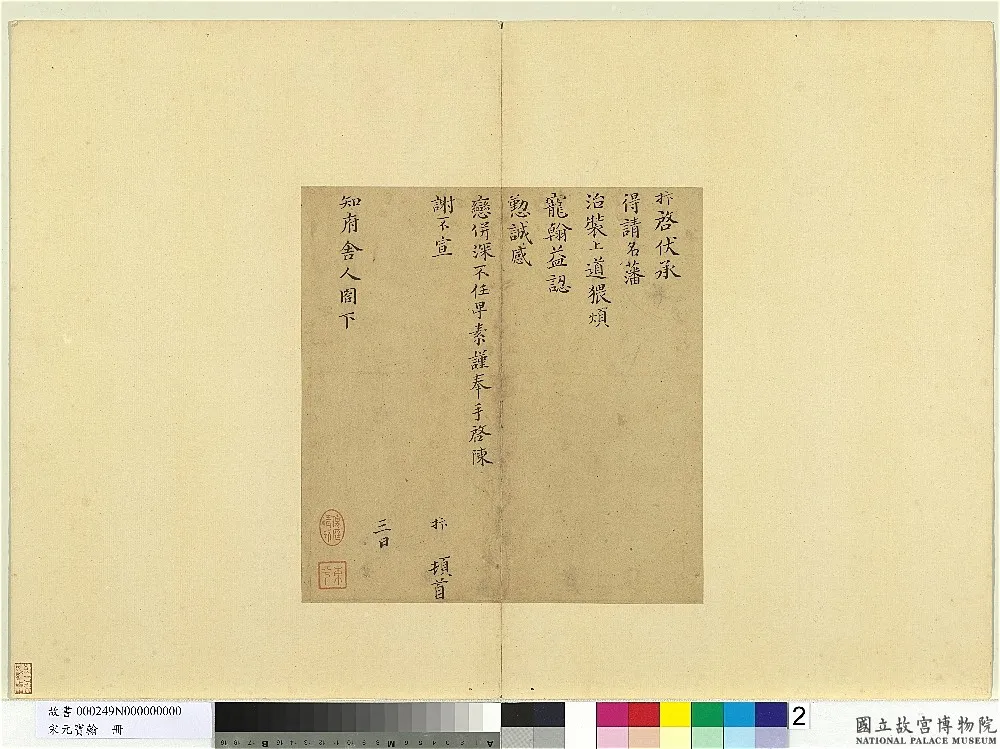 抃啓伏承
得請名藩
治裝上道猥煩
寵翰益認
懃誠感
戀併深不任早素謹奉手啓陳
謝不宣
抃 頓首
三日
知府舍人閤下
故書 000249N000000000
宋元寶翰 冊
2
國立故宮博物院
NATIONAL PALACE MUSEUM